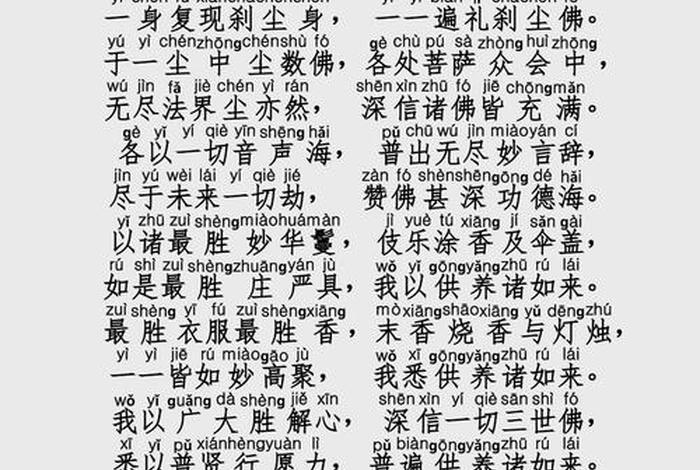 一身复现刹尘身， 一一遍礼刹尘佛。
yú yì chénzhōngchénshù fó gè chù pú sà zhòng huì zhōng
于一尘中尘数佛，各处菩萨众会中，
wú jìn fǎ jiè chén yì rán shēn xìn zhū fó jiē chōngmǎn
无尽法界尘亦然， 深信诸佛皆充满。
gè yǐ yí qiè yīn shēng hǎi pǔ chū wú jìn miàoyán cí
各以一切音声海， 普出无尽妙言辞，
jìn yú wèi lái yí qiè jié zàn fó shènshēngōng dé hǎi
尽于未来一切劫， 赞佛甚深功德海。
yǐ zhū zuì shèngmiàohuámàn jì yuè tú xiāng jí sǎn gài
以诸最胜妙华鬘， 伎乐涂香及伞盖，
rú shì zuì shèngzhuāngyán jù wǒ yǐ gōngyǎngzhū rú lái
如是最胜庄严具， 我以供养诸如来。
zuì shèng yī fú zuì shèngxiāng mòxiāngshāoxiāng yǔ dēngzhú
最胜衣服最胜香， 末香烧香与灯烛，
yì yì jiē rú miàogāo jù wǒ xī gōngyǎngzhū rú lái
一一皆如妙高聚， 我悉供养诸如来。
wǒ yǐ guǎng dà shèng jiě xīn shēn xìn yí qiè sān shì fó
我以广大胜解心， 深信一切三世佛，
xī yǐ pǔ xiánhèngyuàn lì pǔ biàngōngyǎngzhū rú lái
悉以普贤行愿力， 普遍供养诸如来。